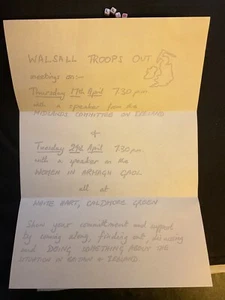 WALSALL TROOPS OUT
meetings on:-
Thursday 17th April 7.30 pm
with a speaker from the
MIDLANDS COMMITTEE ON IRELAND
&
Tuesday 29th April 7.30 pm
with a speaker on the
WOMEN IN ARMAGH GAOL
all at
WHITE HART, CALDMORE GREEN
Show your commitment and support
by coming along, finding out, discussing
and DOING SOMETHING ABOUT THE
SITUATION IN BRITAIN & IRELAND